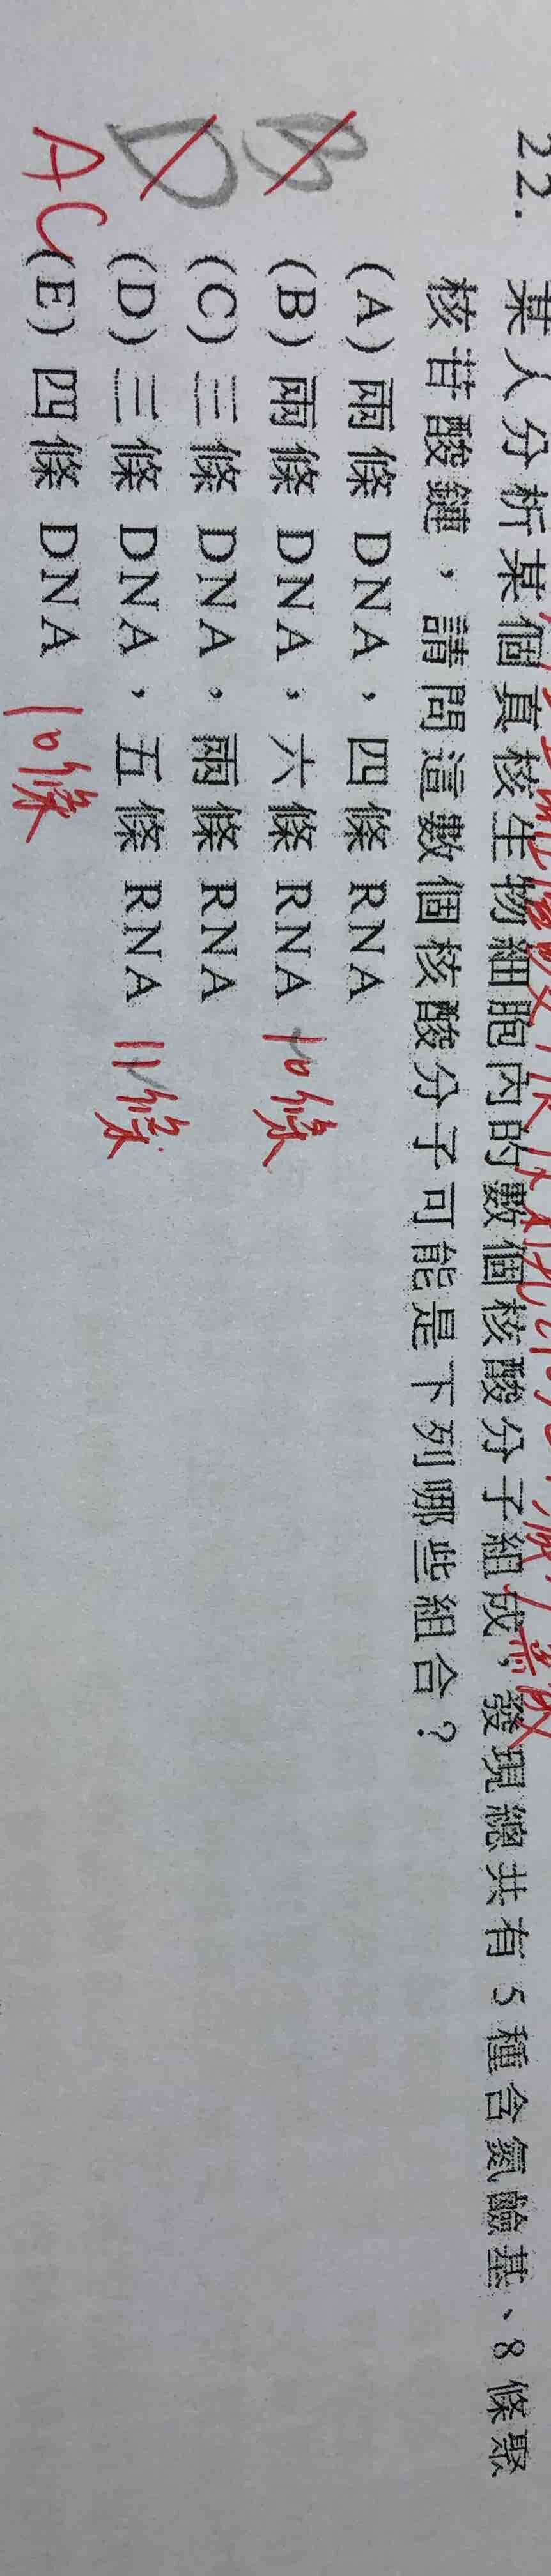 22. 某人分析某個真核生物細胞內的數個核酸分子組成，發現總共有 5 種含氮鹼基、8 條聚
核苷酸鏈，請問這數個核酸分子可能是下列哪些組合？
(A) 兩條 DNA，四條 RNA
B (B) 兩條 DNA，六條 RNA 10條
(C) 三條 DNA，兩條 RNA
D (D) 三條 DNA，五條 RNA 11條
AC (E) 四條 DNA 10條